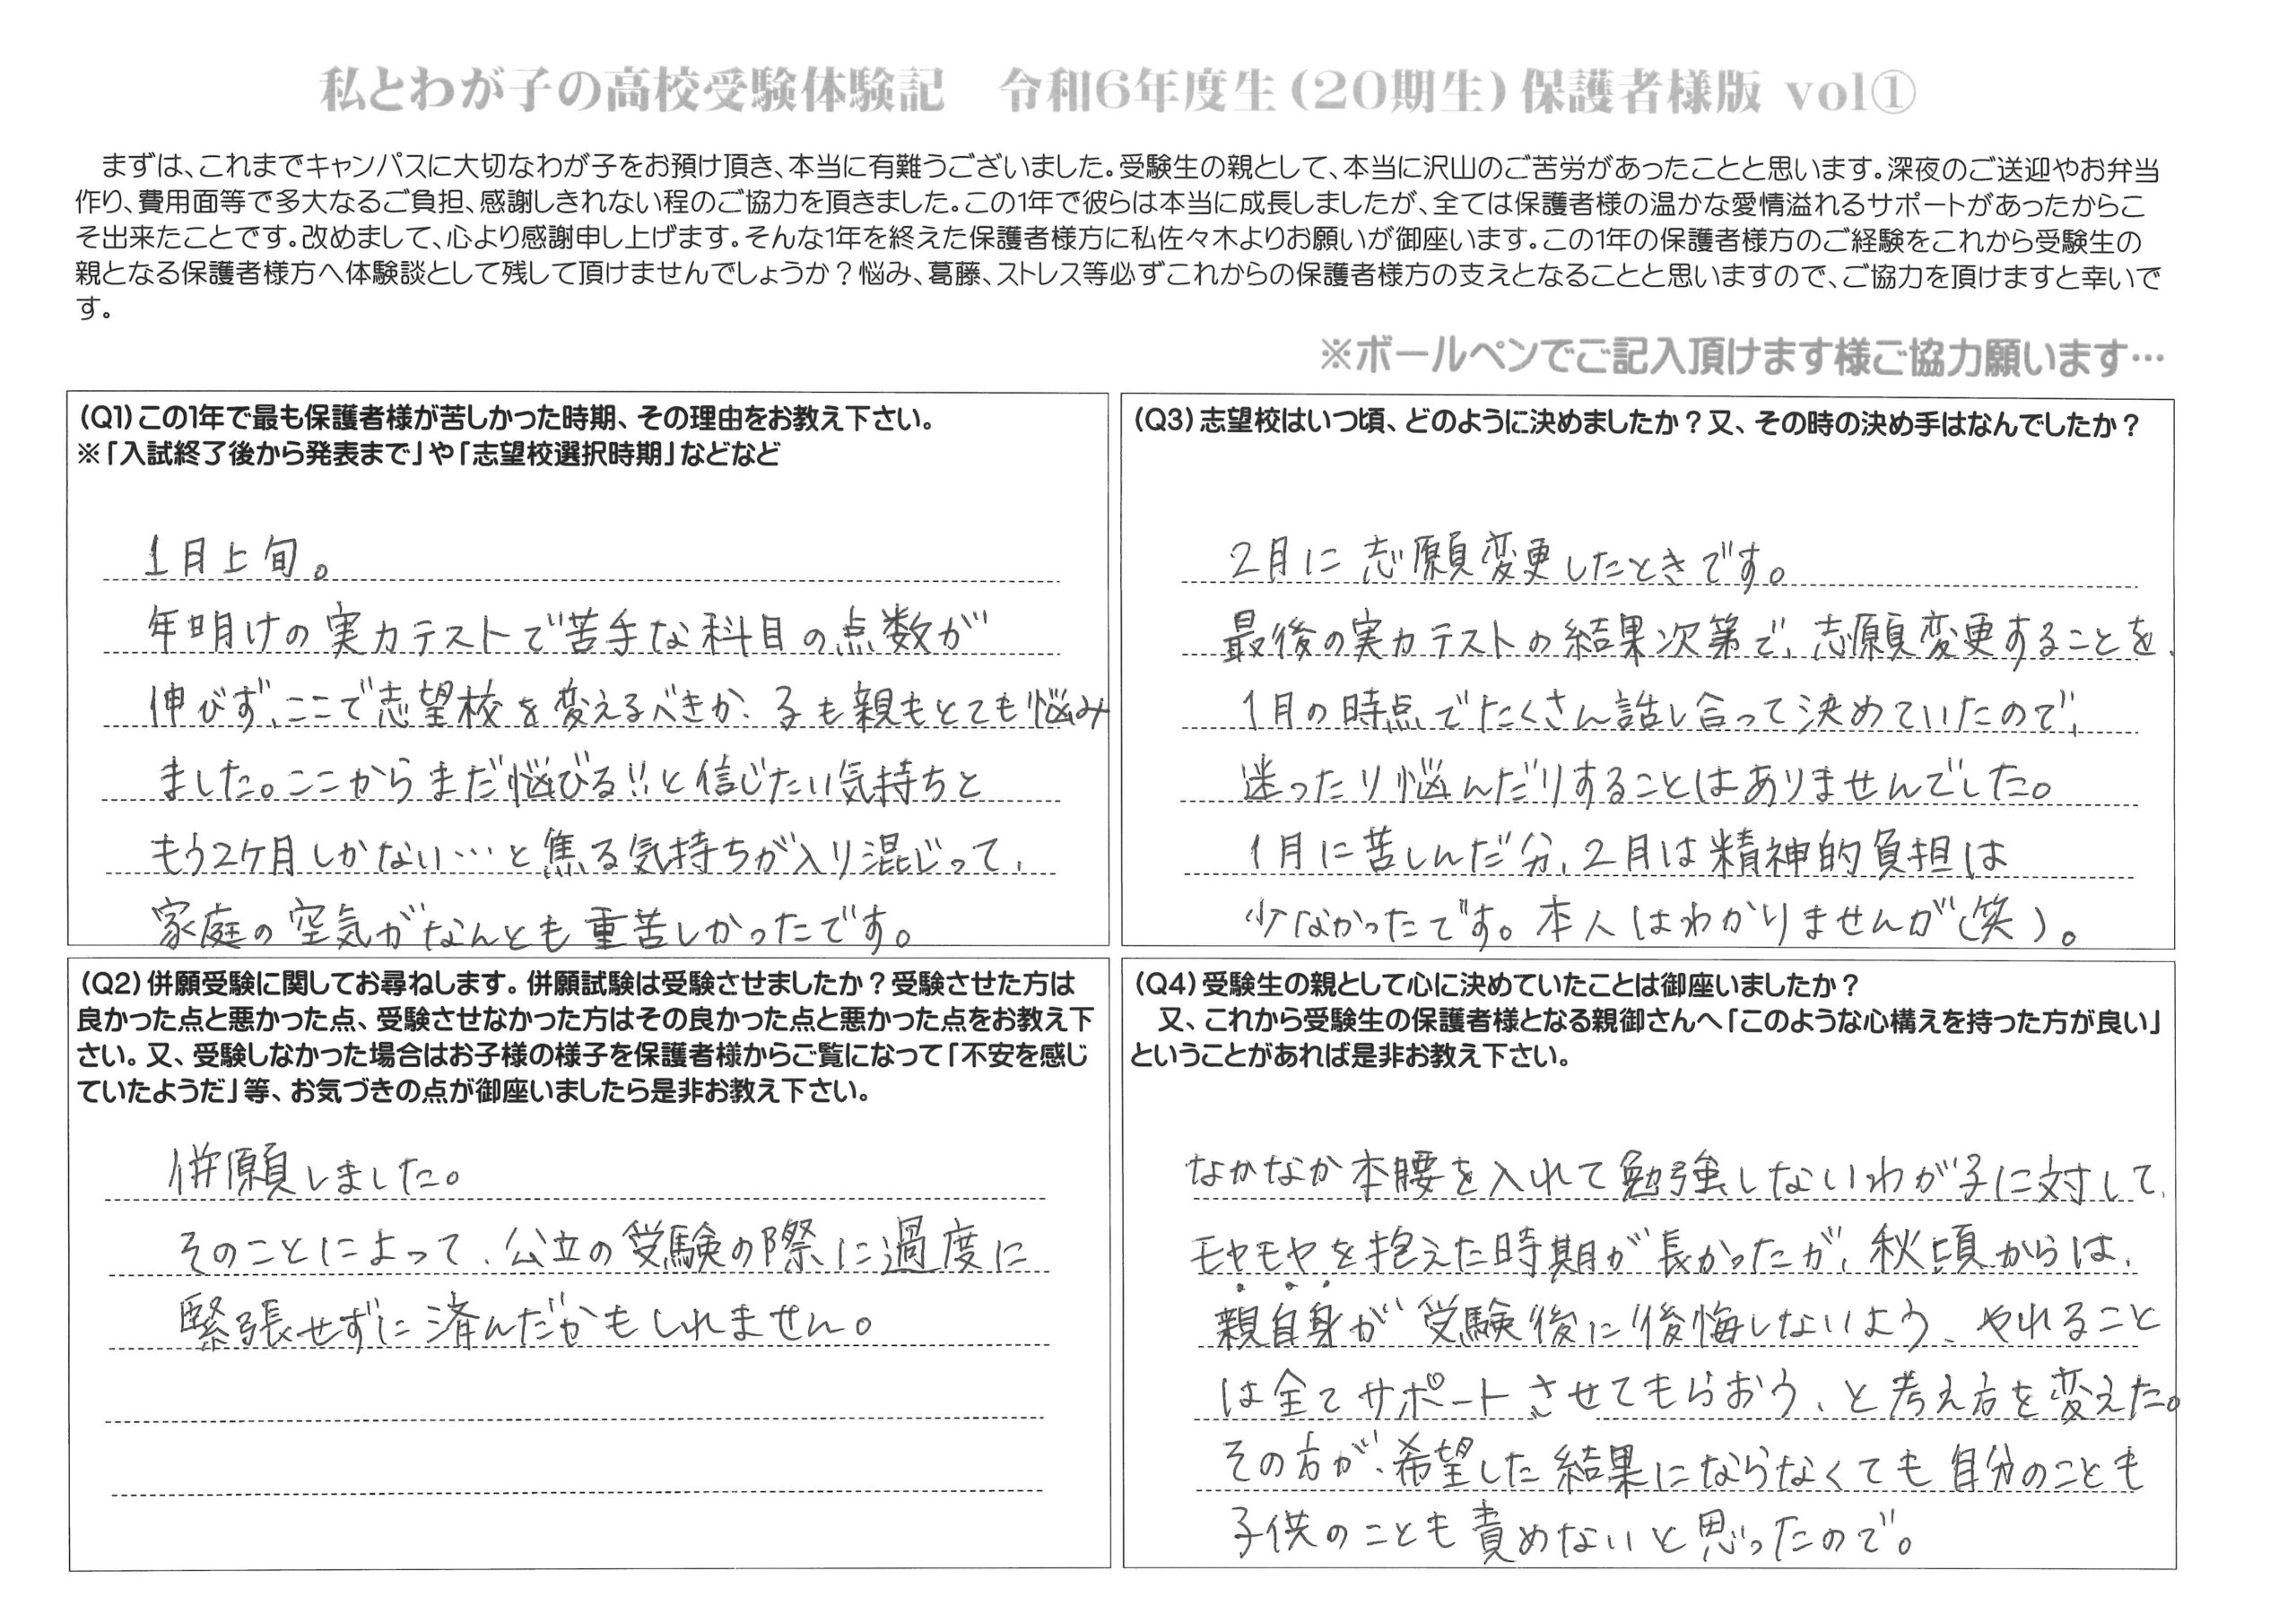 私とわが子の高校受験体験記　令和6年度生（20期生）保護者様版 vol①
まずは、これまでキャンパスに大切なわが子をお預け頂き、本当に有難うございました。受験生の親として、本当に沢山のご苦労があったことと思います。深夜のご送迎やお弁当
作り、費用面等で多大なるご負担、感謝しきれない程のご協力を頂きました。この1年で彼らは本当に成長しましたが、全ては保護者様の温かな愛情溢れるサポートがあったからこ
そ出来たことです。改めまして、心より感謝申し上げます。そんな1年を終えた保護者様方に私佐々木よりお願いが御座います。この1年の保護者様方のご経験をこれから受験生の
親となる保護者様方へ体験談として残して頂けませんでしょうか？悩み、葛藤、ストレス等必ずこれからの保護者様方の支えとなることと思いますので、ご協力を頂けますと幸いで
す。
※ボールペンでご記入頂けます様ご協力願います…
（Q1）この1年で最も保護者様が苦しかった時期、その理由をお教え下さい。
※「入試終了後から発表まで」や「志望校選択時期」などなど
1月上旬。
年明けの実力テストで苦手な科目の点数が
伸びず、ここで志望校を変えるべきか、子も親もとても悩み
ました。ここからまだ伸びる!!と信じたい気持ちと
もう2ケ月しかない…と焦る気持ちが入り混じって、
家庭の空気がなんとも重苦しかったです。
（Q2）併願受験に関してお尋ねします。併願試験は受験させましたか？受験させた方は
良かった点と悪かった点、受験させなかった方はその良かった点と悪かった点をお教え下
さい。又、受験しなかった場合はお子様の様子を保護者様からご覧になって「不安を感じ
ていたようだ」等、お気づきの点が御座いましたら是非お教え下さい。
併願しました。
そのことによって、公立の受験の際に過度に
緊張せずに済んだかもしれません。
（Q3）志望校はいつ頃、どのように決めましたか？又、その時の決め手はなんでしたか？
2月に志願変更したときです。
最後の実力テストの結果次第で、志願変更することを、
1月の時点でたくさん話し合って決めていたので、
迷ったり悩んだりすることはありませんでした。
1月に苦しんだ分、2月は精神的負担は
少なかったです。本人はわかりませんが（笑）。
（Q4）受験生の親として心に決めていたことは御座いましたか？
又、これから受験生の保護者様となる親御さんへ「このような心構えを持った方が良い」
ということがあれば是非お教え下さい。
なかなか本腰を入れて勉強しないわが子に対して、
モヤモヤを抱えた時期が長かったが、秋頃からは、
親自身が受験後に後悔しないよう、やれること
は全てサポートさせてもらおう、と考え方を変えた。
その方が、希望した結果にならなくても自分のことも
子供のことも責めないと思ったので。